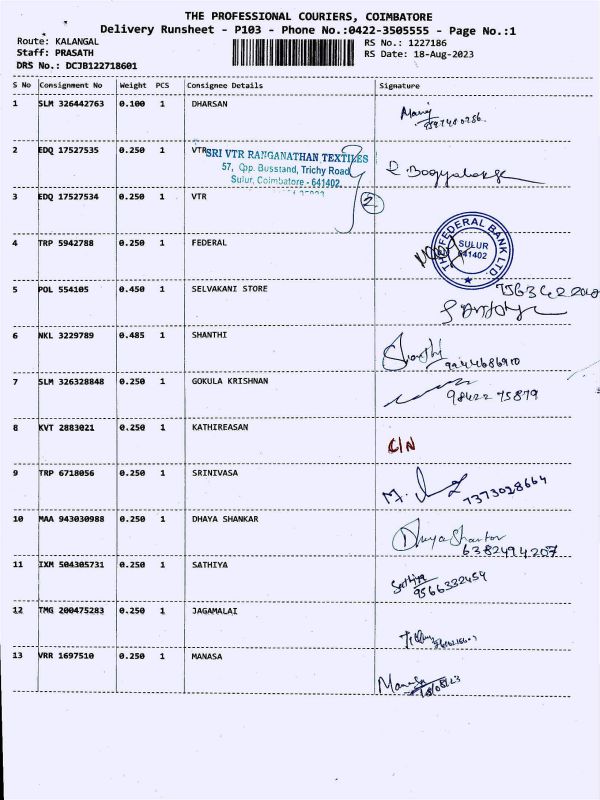 THE PROFESSIONAL COURIERS, COIMBATORE
Delivery Runsheet - P103 - Phone No.:0422-3505555 - Page No.:1
Route: KALANGAL
RS No.: 1227186
Staff: PRASATH
RS Date: 18-Aug-2023
DRS No.: DCJB122718601
S No Consignment No Weight PCS Consignee Details Signature
1 SLM 326442763 0.100 1 DHARSAN
2 EDQ 17527535 0.250 1 VTR
SRI VTR RANGANATHAN TEXTILES
57, Opp. Busstand, Trichy Road,
Sulur, Coimbatore - 641402.
3 EDQ 17527534 0.250 1 VTR
2
4 TRP 5942788 0.250 1 FEDERAL
THE FEDERAL BANK LTD.
SULUR
641402
5 POL 554105 0.450 1 SELVAKANI STORE
6 NKL 3229789 0.485 1 SHANTHI
Shanthi
7 SLM 326328848 0.250 1 GOKULA KRISHNAN
98422 75879
8 KVT 2883021 0.250 1 KATHIREASAN
C/N
9 TRP 6718056 0.250 1 SRINIVASA
7373028664
10 MAA 943030988 0.250 1 DHAYA SHANKAR
6382494207
11 IXM 504305731 0.250 1 SATHIYA
Sathiya
9566332454
12 TMG 200475283 0.250 1 JAGAMALAI
13 VRR 1697510 0.250 1 MANASA
Manasa